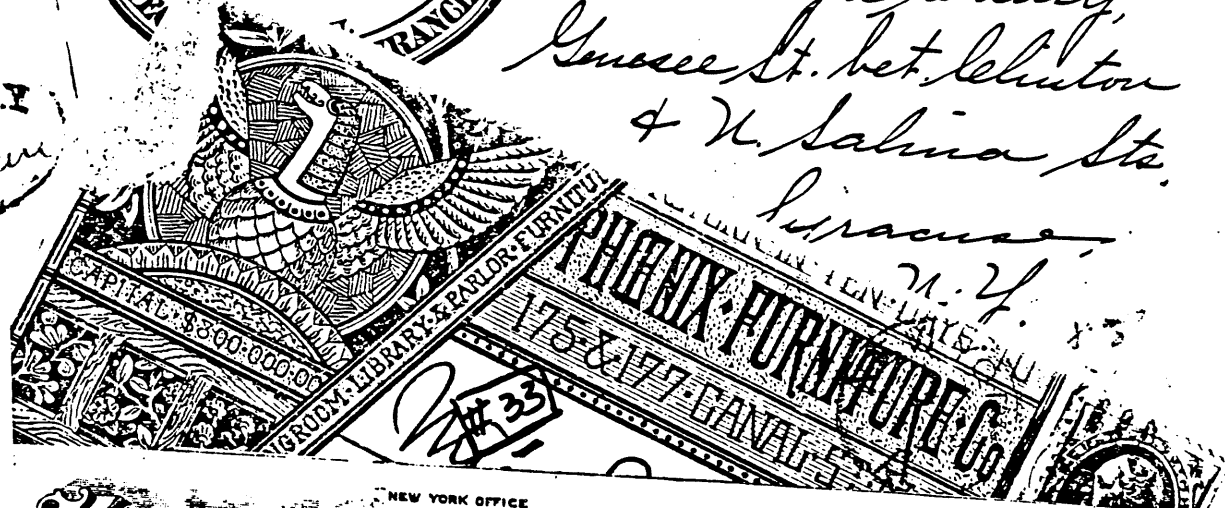 RANCE
Genesee St. bet. Clinton
& N. Salina Sts.
Syracuse,
N. Y.
CAPITAL·$800.000.00
LIBRARY·&·PARLOR·FURNITU
TEN·DAYS
PHŒNIX·FURNITURE·Co
175·&177·CANAL·S
# 33
NEW YORK OFFICE